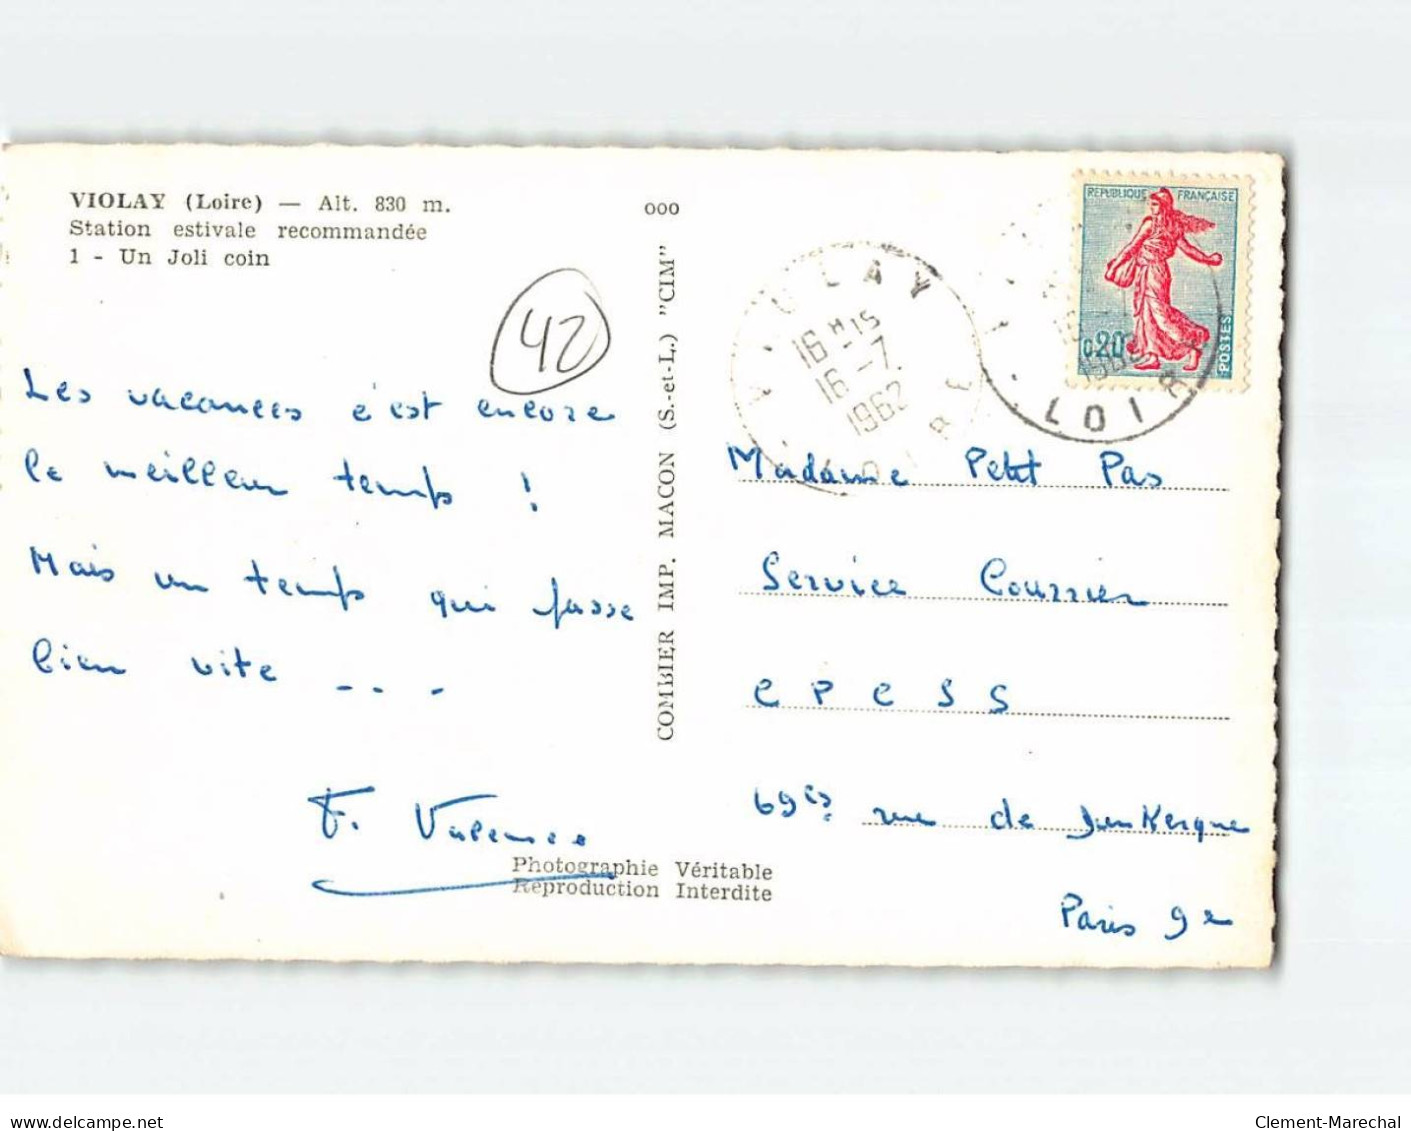 VIOLAY (Loire) — Alt. 830 m.
Station estivale recommandée
1 - Un Joli coin
42
Les vacances c'est encore
le meilleur temps !
Mais un temps qui passe
bien vite ...
F. Valence
Photographie Véritable
Reproduction Interdite
ooo
COMBIER IMP. MACON (S.-et-L.) "CIM"
VIOLAY
16 H 15
16 - 7.
1962
LOIRE
REPUBLIQUE FRANÇAISE
0,20
POSTES
LOIRE
Madame Petit Pas
Service Courrier
C P C S S
69 bis rue de Dunkerque
Paris 9e
www.delcampe.net
Clement-Marechal